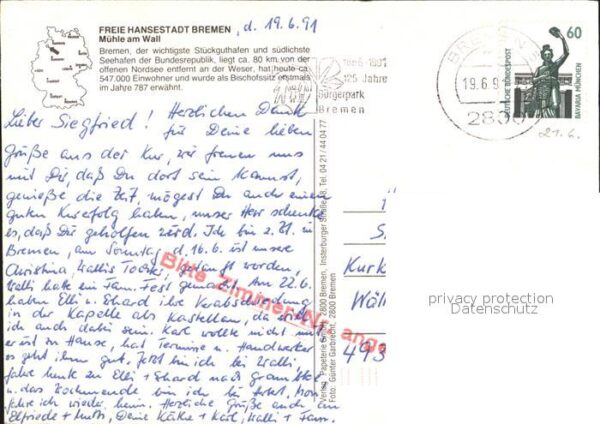 FREIE HANSESTADT BREMEN , d. 19.6.91
Mühle am Wall
Bremen, der wichtigste Stückguthafen und südlichste
Seehafen der Bundesrepublik, liegt ca. 80 km von der
offenen Nordsee entfernt an der Weser, hat heute ca.
547.000 Einwohner und wurde als Bischofssitz erstmals
im Jahre 787 erwähnt.
1866-1991
125 Jahre
Bürgerpark
Bremen
BREMEN
19.6.9
2800
60
DEUTSCHE BUNDESPOST
BAVARIA MÜNCHEN
21.6.
Lieber Siegfried! Herzlichen Dank
für Deine lieben
Grüße aus der Kur, wir freuen uns
mit Dir, daß Du dort sein kannst,
genieße die Zeit, mögest Du auch einen
guten Kurerfolg haben, unser Herr schenke
es, daß Dir geholfen wird. Ich bin bis z. 21. in
Bremen, am Sonntag, d. 16.6. ist unsere
Christina, Wallis Tochter, getauft worden,
Walli hatte ein Fam. Fest gemacht. Am 22.6.
haben Elli u. Ehard ihre Verabschiedung
in der Kapelle als Kastellan, da will
ich auch dabei sein. Karl wollte nicht mit
er ist zu Hause, hat Termine u. Handwerker
es geht ihm gut. Jetzt bin ich bei Walli,
fahre heute zu Elli + Ehard nach
u. das Wochenende bin ich bei
fahre ich wieder heim. Herzliche Grüße auch an
Elfriede + Mutti, Deine Käthe + Karl, Walli + Fam.
Bitte Zimmer-Nr. ange
Verlag: Papeterie 2800 Bremen, Insterburger Straße 8, Tel. 04 21 / 44 04 77
Foto: Günter Garbrecht, 2800 Bremen
S
Kurk
Wäl
493
privacy protection
Datenschutz